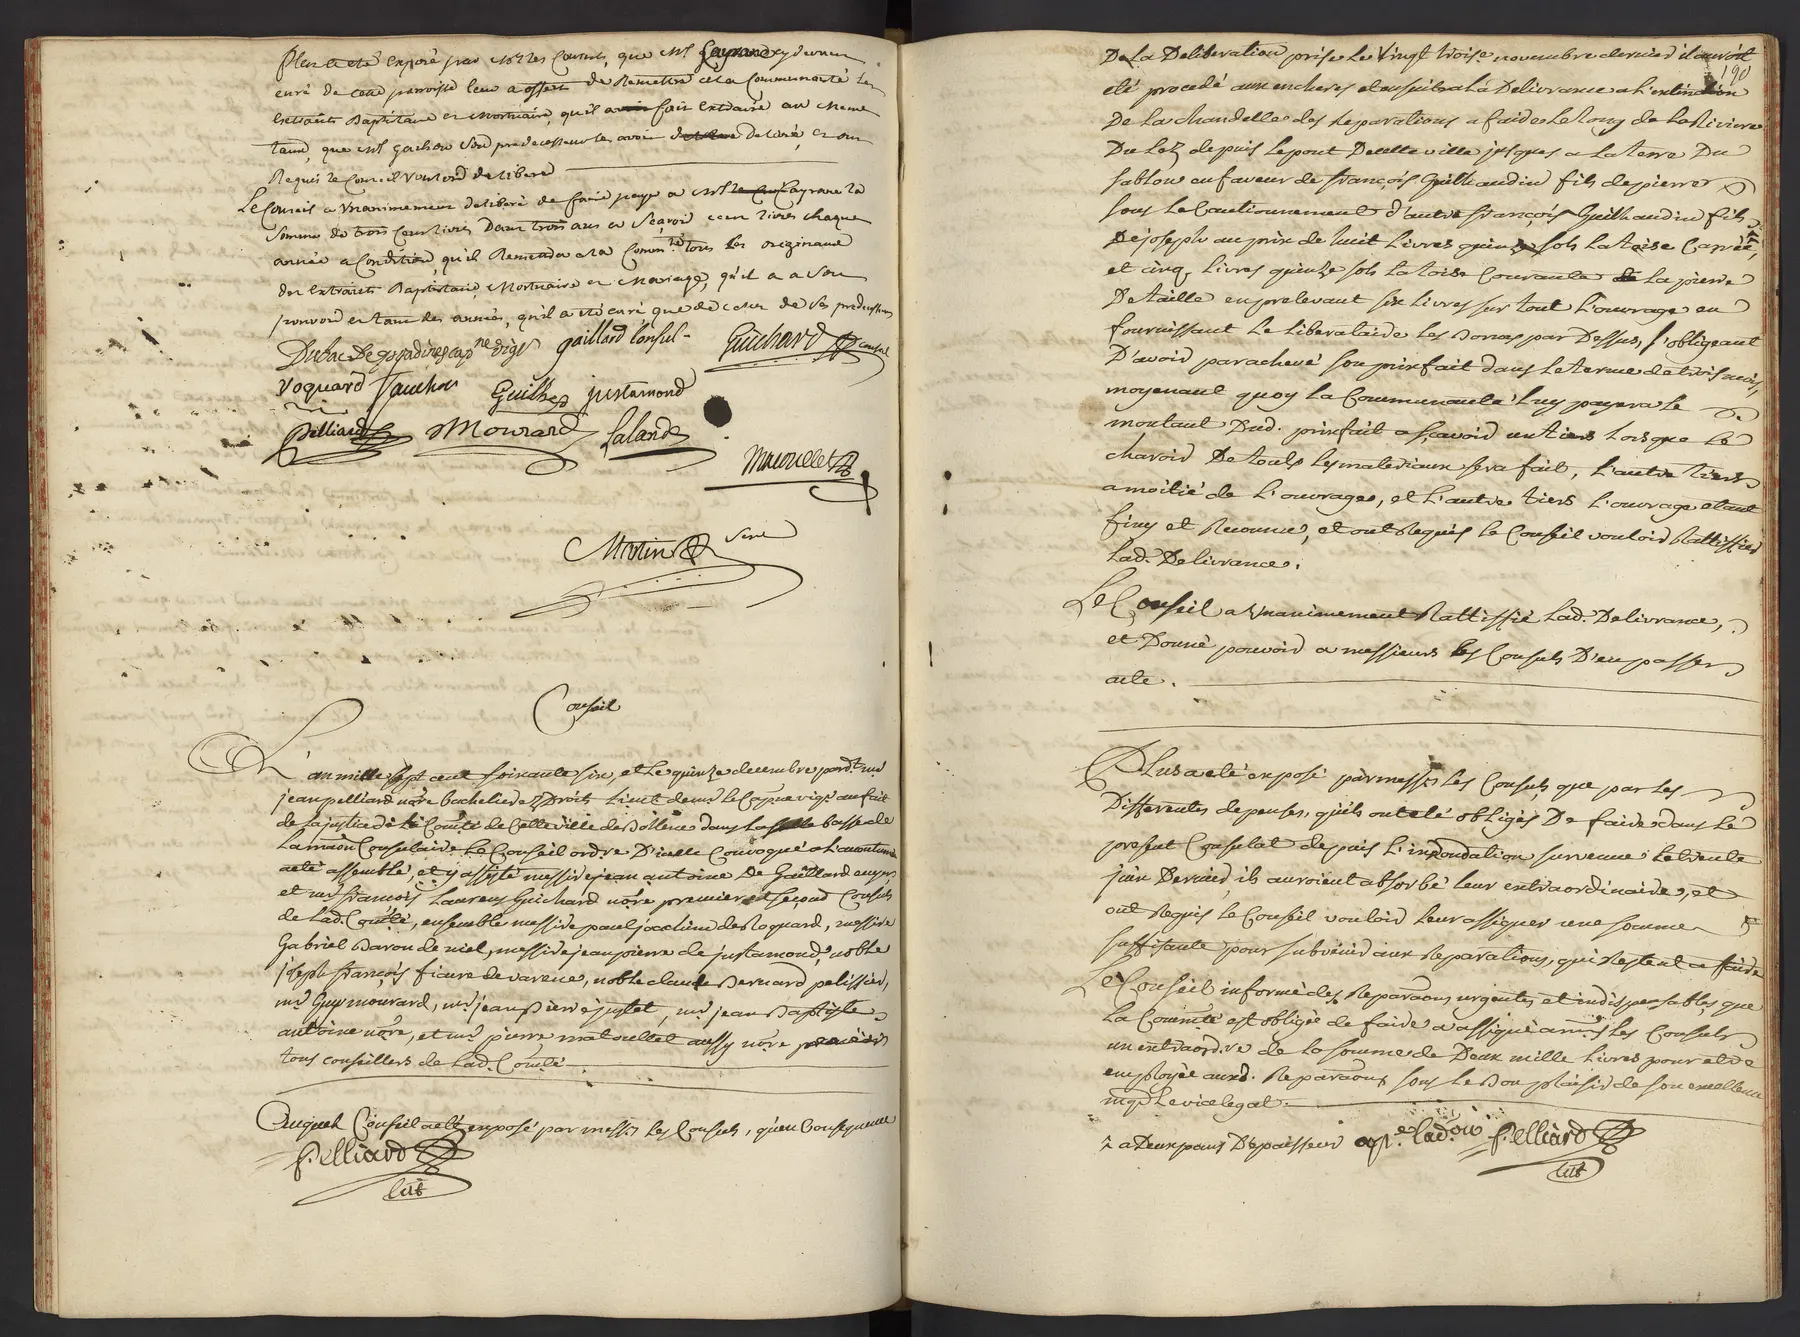 Plus a été exposé par Mrs les Consuls, que Mr Layrand cy devant
curé de cette parroisse leur a offert de Remettre a la Communauté les
extraits Baptistaire et Mortuaire, qu'il a fait extraire au meme
tems, que Mr Gachon son predecesseur les avoit delivré, et ont
Requis le Conseil vouloir deliberé
Le Conseil a unanimement deliberé de faire payé a Mr Layrand la
somme de trois cens livres Dans trois ans a sçavoir cent livres chaque
année a Condition, qu'il Remettra a la Commté tous les originaux
des extraits Baptistaire, Mortuaire et Mariage, qu'il a a son
pouvoir et tant des années, qu'il a été curé que de ceux de ses predecesseurs
gaillard Consul Guichard consul
roquard Guilhe justamond
Pelliard Mourard Lalande
Matouillet
Martin
Conseil
L'an mille sept cent soixante six, et le quinze decembre pardt mr
jean pelliard nore bachelier ez Droits Lieut de mr le Capne vigr au fait
de la justice de la Comté de Cette ville de Bollene dans la salle basse de
la maison Consulaire le Conseil ordre D'icelle Convoqué a L'accoutumé
a eté assemblé, et y assisté messire jean antoine De Gaillard
et mr françois Laurens Guichard nore premier et second Consuls
de lad. Comté, ensemble messire paul joachim de Roquard, messire
Gabriel Baron de niel, messire jean pierre de justamond, noble
joseph françois ficure de varene, noble claude Bernard pelissier,
mr Guy mourard, mr jean pierre justet, mr jean Baptiste
antoine nore, et mr pierre matouillet aussy nore
tous conseillers de lad. Comté
Auquel Conseil a eté exposé par messrs les Consuls, qu'en Consequence
Pelliard
lut
190
De la Deliberation prise le vingt troise novembre dernier il auroit
eté procedé aux encheres et ensuite a la Delivrance a l'extinction
De la chandelle des Reparations a faire le long de la Riviere
Du Lez depuis le pont De cette ville jusques a la terre Du
sablon en faveur de françois Guilhaudin fils de pierre
sous le Cautionnement d'autre françois Guilhaudin fils
De joseph au prix de huit livres quinze sols la toise Carrée,
et cinq livres quinze sols la toise Courante de la pierre
De taille en prelevant six livres sur tout l'ouvrage en
fournissant le liberataire les Bornes par Dessus, s'obligeant
D'avoir parachevé son prixfait dans le terme de trois mois,
moyenant quoy la Communauté luy payera le
montant Dud. prixfait a sçavoir un tiers lorsque le
charoir De touts les materiaux sera fait, l'autre tiers
a moitié de l'ouvrage, et l'autre tiers l'ouvrage etant
finy et Reconnu, et ont Requis le Conseil vouloir Rattiffier
lad. Delivrance.
Le Conseil a unanimement Rattiffié lad. Delivrance,
et Donné pouvoir a messieurs les Consuls D'en passer
acte.
Plus a eté exposé par messrs les Consuls, que par les
Differentes depenses, qu'ils ont eté obligés De faire dans le
present Consulat depuis l'inondation survenue le trente
juin Dernier, ils auroient absorbé leur extraordinaire, et
ont Requis le Conseil vouloir leur assigner une somme
suffisante pour subvenir aux Reparations, qui Restent a faire
Le Conseil informé des Reparaons urgentes et indispensables, que
la Comnté est obligée de faire a assigné a mrs les Consuls
un extraord.re de la somme de Deux mille livres pour etre
employée auxd. Reparaons sous le Bon plaisir de son excellence
mgr le vicelegat.
a Deux pans D'epaisseur app.é lad.on Pelliard
lut